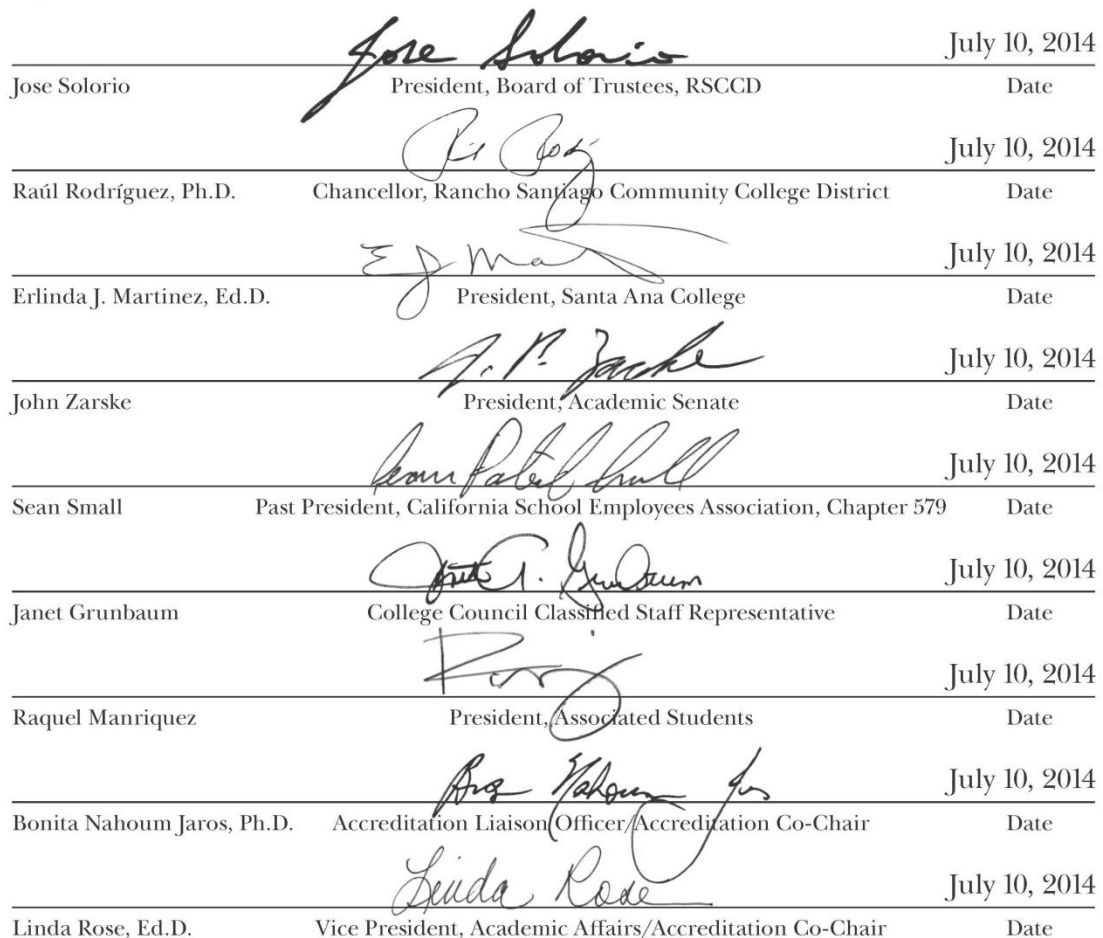 Jose Solorio July 10, 2014
Jose Solorio President, Board of Trustees, RSCCD Date
July 10, 2014
Raúl Rodríguez, Ph.D. Chancellor, Rancho Santiago Community College District Date
July 10, 2014
Erlinda J. Martinez, Ed.D. President, Santa Ana College Date
July 10, 2014
John Zarske President, Academic Senate Date
July 10, 2014
Sean Small Past President, California School Employees Association, Chapter 579 Date
July 10, 2014
Janet Grunbaum College Council Classified Staff Representative Date
July 10, 2014
Raquel Manriquez President, Associated Students Date
July 10, 2014
Bonita Nahoum Jaros, Ph.D. Accreditation Liaison Officer/Accreditation Co-Chair Date
Linda Rose July 10, 2014
Linda Rose, Ed.D. Vice President, Academic Affairs/Accreditation Co-Chair Date